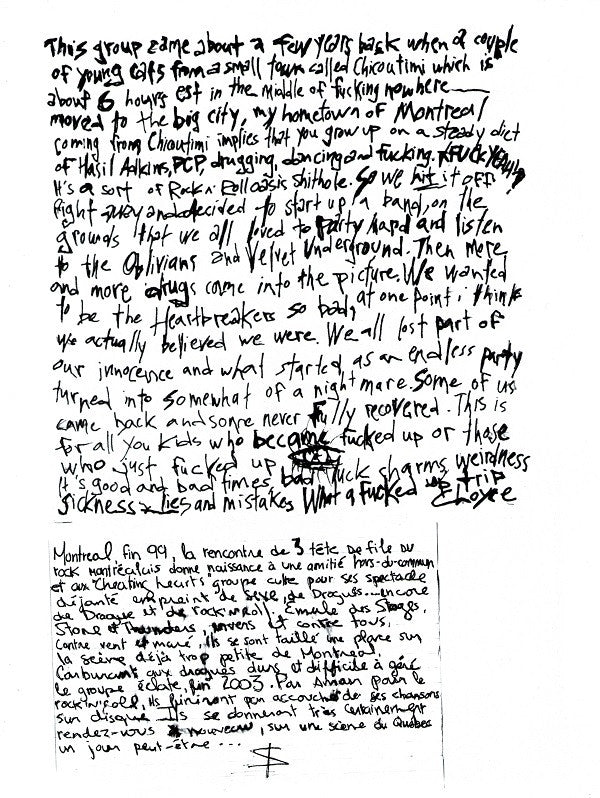 This group came about a few years back when a couple
of young cats from a small town called Chicoutimi which is
about 6 hours est in the middle of fucking nowhere
moved to the big city, my hometown of Montreal
coming from Chicoutimi implies that you grow up on a steady diet
of Hasil Adkins, PCP, drugging, dancing and fucking.
It's a sort of Rock n Roll oasis shithole. So we hit it off
Right away and decided to start up a band, on the
grounds that we all loved to party hard and listen
to the Oblivians and Velvet Underground. Then more
and more drugs came into the picture. We wanted
to be the Heartbreakers so bad, at one point i think
we actually believed we were. We all lost part of
our innocence and what started as an endless party
turned into somewhat of a nightmare. Some of us
came back and some never fully recovered. This is
for all you kids who became fucked up or those
who just fucked up
It's good and bad times bad luck charms weirdness
sickness lies and mistakes What a fucked up trip
Choyce
Montreal, fin 99, la rencontre de 3 tête de file du
rock montréalais donne naissance à une amitié hors-du-commun
et aux "Cheating hearts" groupe culte pour ses spectacle
déjanté empreint de sexe, de Drogues... encore
de Drogue et de rock'n roll. Émule des Stooges,
Stone et Thunders, envers et contre tous,
Contre vent et maré, ils se sont taillé une place sur
la scène déjà trop petite de Montreal.
Carburant aux drogues durs et difficile à géré
le groupe éclate, fin 2003. Par Amour pour le
rock'n'roll, ils finiront par accoucher de ses chansons
sur disque. Ils se donneront très certainement
rendez-vous à nouveau, sur une scène du Québec
un jour peut-être ...